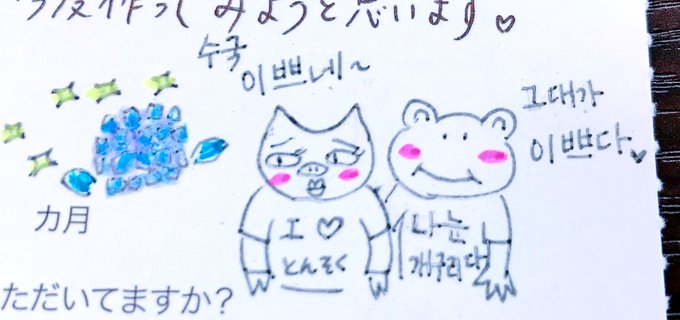 みようと思います♡
수국
이쁘네~
그대가
이쁘다♥
カ月
I ♡
とんそく
나는
개구리다
ただいてますか？